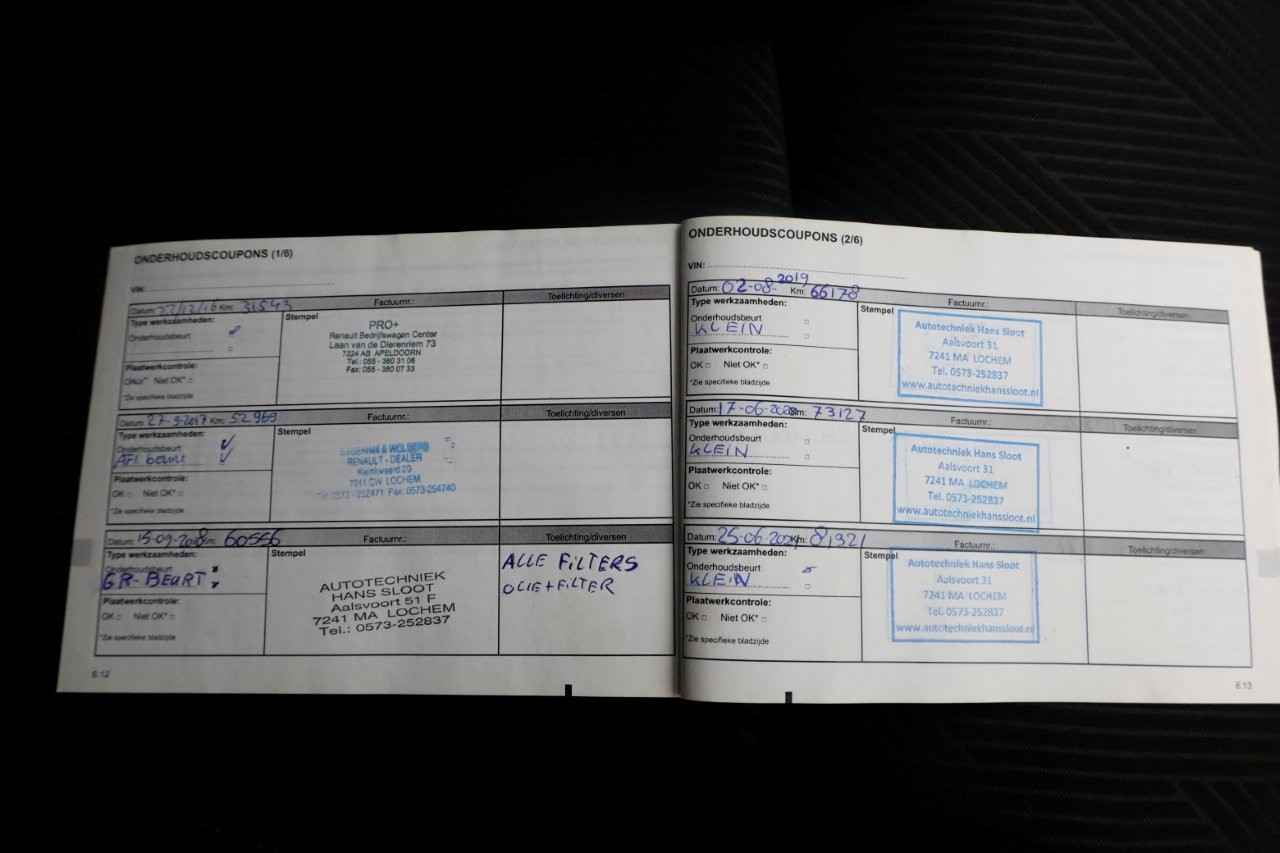 ONDERHOUDSCOUPONS (1/6)
VIN:
Datum: 22/12/16 Km: 31543 Factuurnr.: Toelichting/diversen
Type werkzaamheden: Stempel
Onderhoudsbeurt
Plaatwerkcontrole:
OK Niet OK*
*Zie specifieke bladzijde
PRO+
Renault Bedrijfswagen Center
Laan van de Dierenriem 73
7324 AB APELDOORN
Tel.: 055 - 360 31 06
Fax: 055 - 360 07 33
Datum: 27-3-2017 Km: 52969 Factuurnr.: Toelichting/diversen
Type werkzaamheden: Stempel
Onderhoudsbeurt
AFL beurt
Plaatwerkcontrole:
OK Niet OK*
*Zie specifieke bladzijde
& WOLBERG
RENAULT - DEALER
7241 CW LOCHEM
Tel. 0573-252471 Fax. 0573-254740
Datum: 15-09-2018 Km: 60556 Factuurnr.: Toelichting/diversen
Type werkzaamheden: Stempel
Onderhoudsbeurt
GR-BEURT
Plaatwerkcontrole:
OK Niet OK*
*Zie specifieke bladzijde
AUTOTECHNIEK
HANS SLOOT
Aalsvoort 51 F
7241 MA LOCHEM
Tel.: 0573-252837
ALLE FILTERS
OLIE+FILTER
6.12
ONDERHOUDSCOUPONS (2/6)
VIN:
Datum: 02-08-2019 Km: 66178 Factuurnr.: Toelichting/diversen
Type werkzaamheden: Stempel
Onderhoudsbeurt
KLEIN
Plaatwerkcontrole:
OK Niet OK*
*Zie specifieke bladzijde
Autotechniek Hans Sloot
Aalsvoort 31
7241 MA LOCHEM
Tel. 0573-252837
www.autotechniekhanssloot.nl
Datum: 17-06-2020 Km: 73127 Factuurnr.: Toelichting/diversen
Type werkzaamheden: Stempel
Onderhoudsbeurt
KLEIN
Plaatwerkcontrole:
OK Niet OK*
*Zie specifieke bladzijde
Autotechniek Hans Sloot
Aalsvoort 31
7241 MA LOCHEM
Tel. 0573-252837
www.autotechniekhanssloot.nl
Datum: 25-06-2021 Km: 81321 Factuurnr.: Toelichting/diversen
Type werkzaamheden: Stempel
Onderhoudsbeurt
KLEIN
Plaatwerkcontrole:
OK Niet OK*
*Zie specifieke bladzijde
Autotechniek Hans Sloot
Aalsvoort 31
7241 MA LOCHEM
Tel. 0573-252837
www.autotechniekhanssloot.nl
6.13